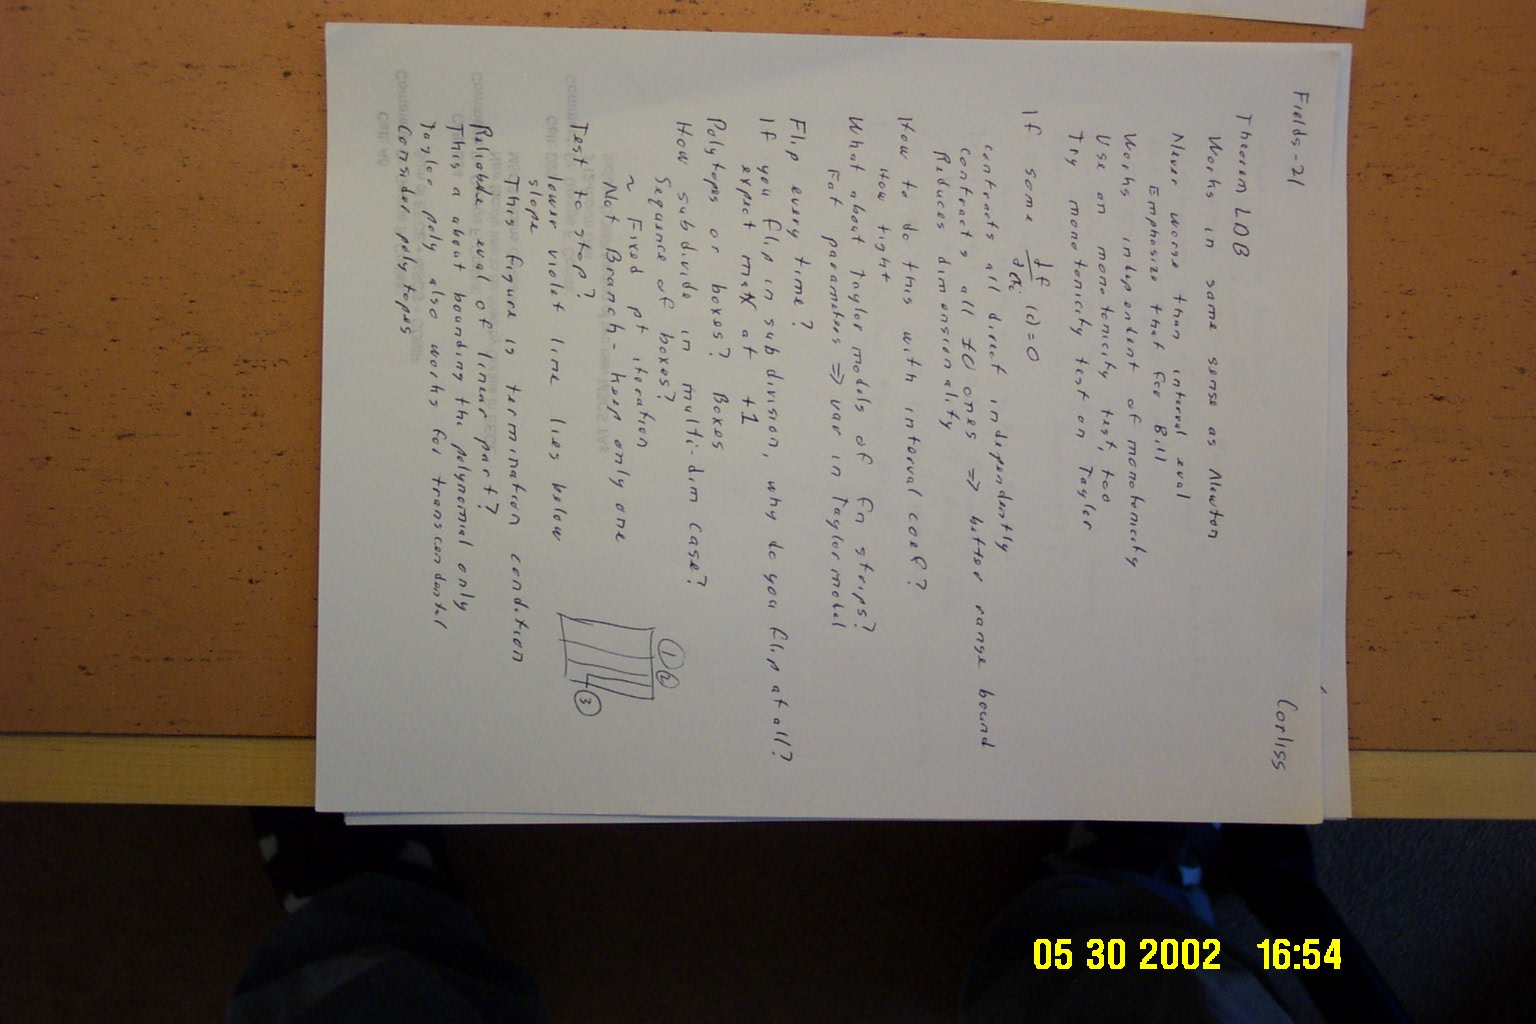 Fields-21
Corliss
Theorem LDB
Works in same sense as Newton
Never worse than interval eval
Emphasize that for Bill
Works independent of monotonicity
Use on monotonicity test, too
Try monotonicity test on Taylor
If some ∂f/∂xi (c) = 0
contracts all direct independently
contracts all ≠0 ones ⇒ better range bound
Reduces dimensionality
How to do this with interval coef?
How tight
What about Taylor models of fn strips?
Fat parameters ⇒ var in Taylor model
Flip every time?
If you flip in subdivision, why do you flip at all?
expect max at +1
Polytopes or boxes? Boxes
How subdivide in multi-dim case?
Sequence of boxes?
~ Fixed pt iteration
Not Branch - keep only one
Test to stop?
lower violet line lies below
slope
This figure is termination condition
Reliable eval of linear part?
This a about bounding the polynomial only
Taylor poly also works for transcendental
Consider polytopes
1 2
3
05 30 2002 16:54